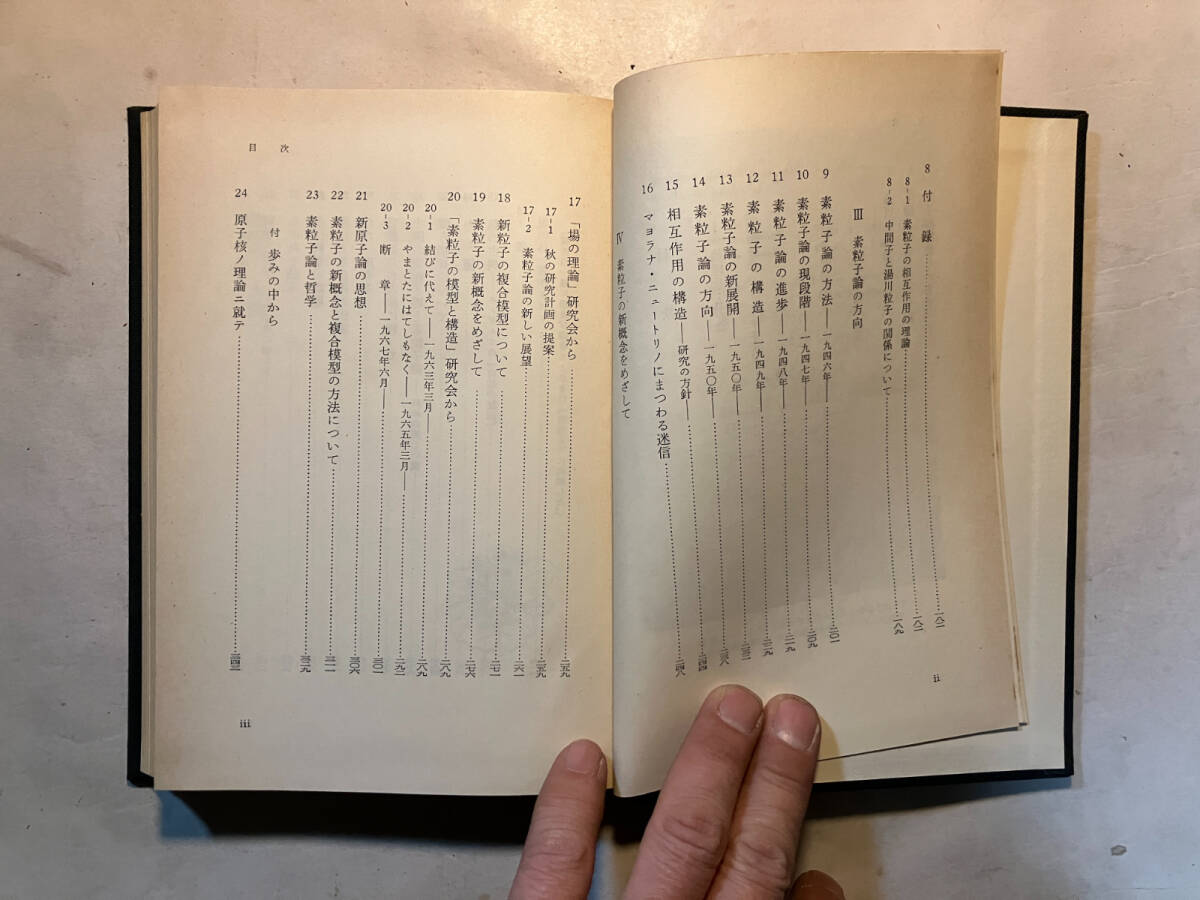 8 付録……一八一
8-1 素粒子の相互作用の理論……一八一
8-2 中間子と湯川粒子の関係について……一八九
III 素粒子論の方向
9 素粒子論の方法——一九四六年——……二〇一
10 素粒子論の現段階——一九四七年——……二〇九
11 素粒子論の進歩——一九四八年——……二一九
12 素粒子の構造——一九四九年——……二二九
13 素粒子論の新展開——一九五〇年——……二三二
14 素粒子論の方向——一九五〇年——……二三八
15 相互作用の構造——研究の方針——……二四四
16 マヨラナ・ニュートリノにまつわる迷信……二四八
IV 素粒子の新概念をめざして
ii
目次
17 「場の理論」研究会から……二五九
17-1 秋の研究計画の提案……二五九
17-2 素粒子論の新しい展望……二六一
18 新粒子の複合模型について……二七一
19 素粒子の新概念をめざして……二七六
20 「素粒子の模型と構造」研究会から……二八九
20-1 結びに代えて——一九六三年三月——……二八九
20-2 やまとたにはてしもなく——一九六五年三月——……二九二
20-3 断章——一九六七年六月——……三〇一
21 新原子論の思想……三〇六
22 素粒子の新概念と複合模型の方法について……三一一
23 素粒子論と哲学……三二九
付 歩みの中から
24 原子核ノ理論ニ就テ……三四三
iii